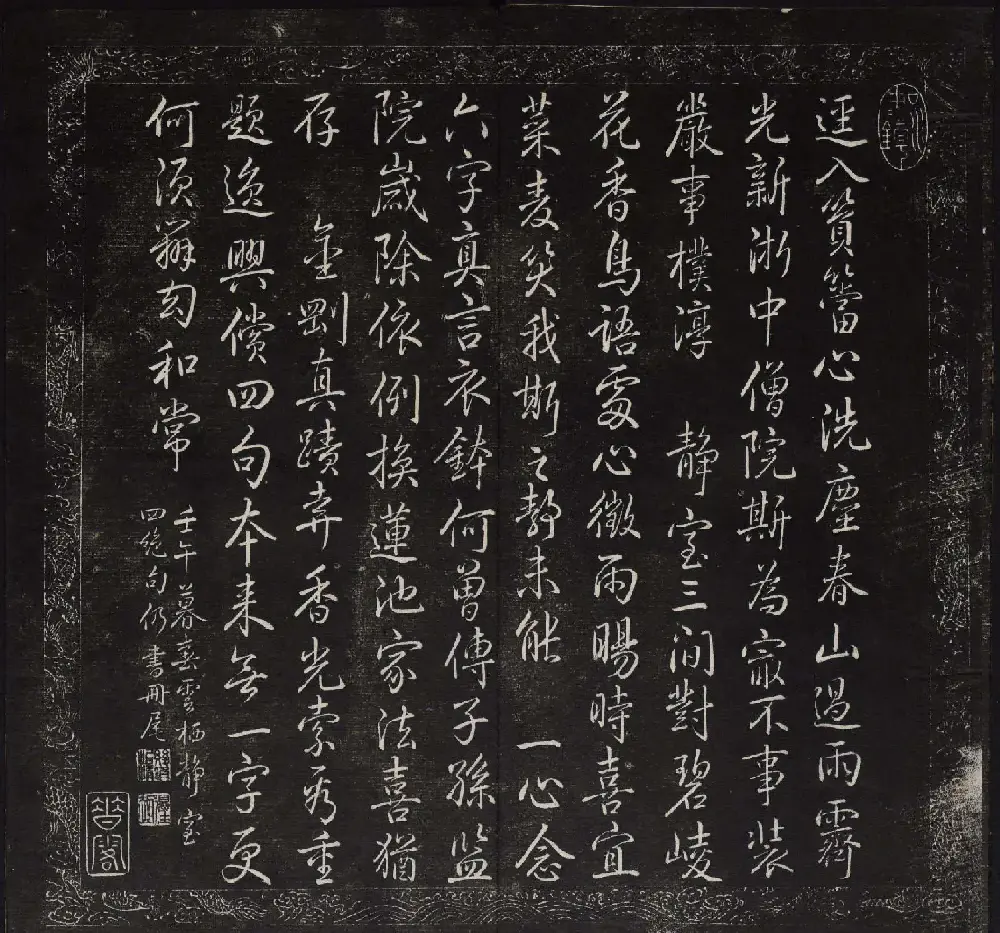 逕入篔簹心洗塵春山過雨霽
光新浙中僧院斯為最不事裝
嚴事樸淳 静室三間對碧崚
花香鳥語愛心徵雨暘時喜宜
菜麦笑我斯之静未能 一心念
六字真言衣鉢何曽傳子孫監
院歳除依例換蓮池家法喜猶
存 金剛真蹟弆香光索為重
題逸興償四句本来無一字更
何須辦匄和常
壬午暮春雲栖静室
四絶句仍書冊尾